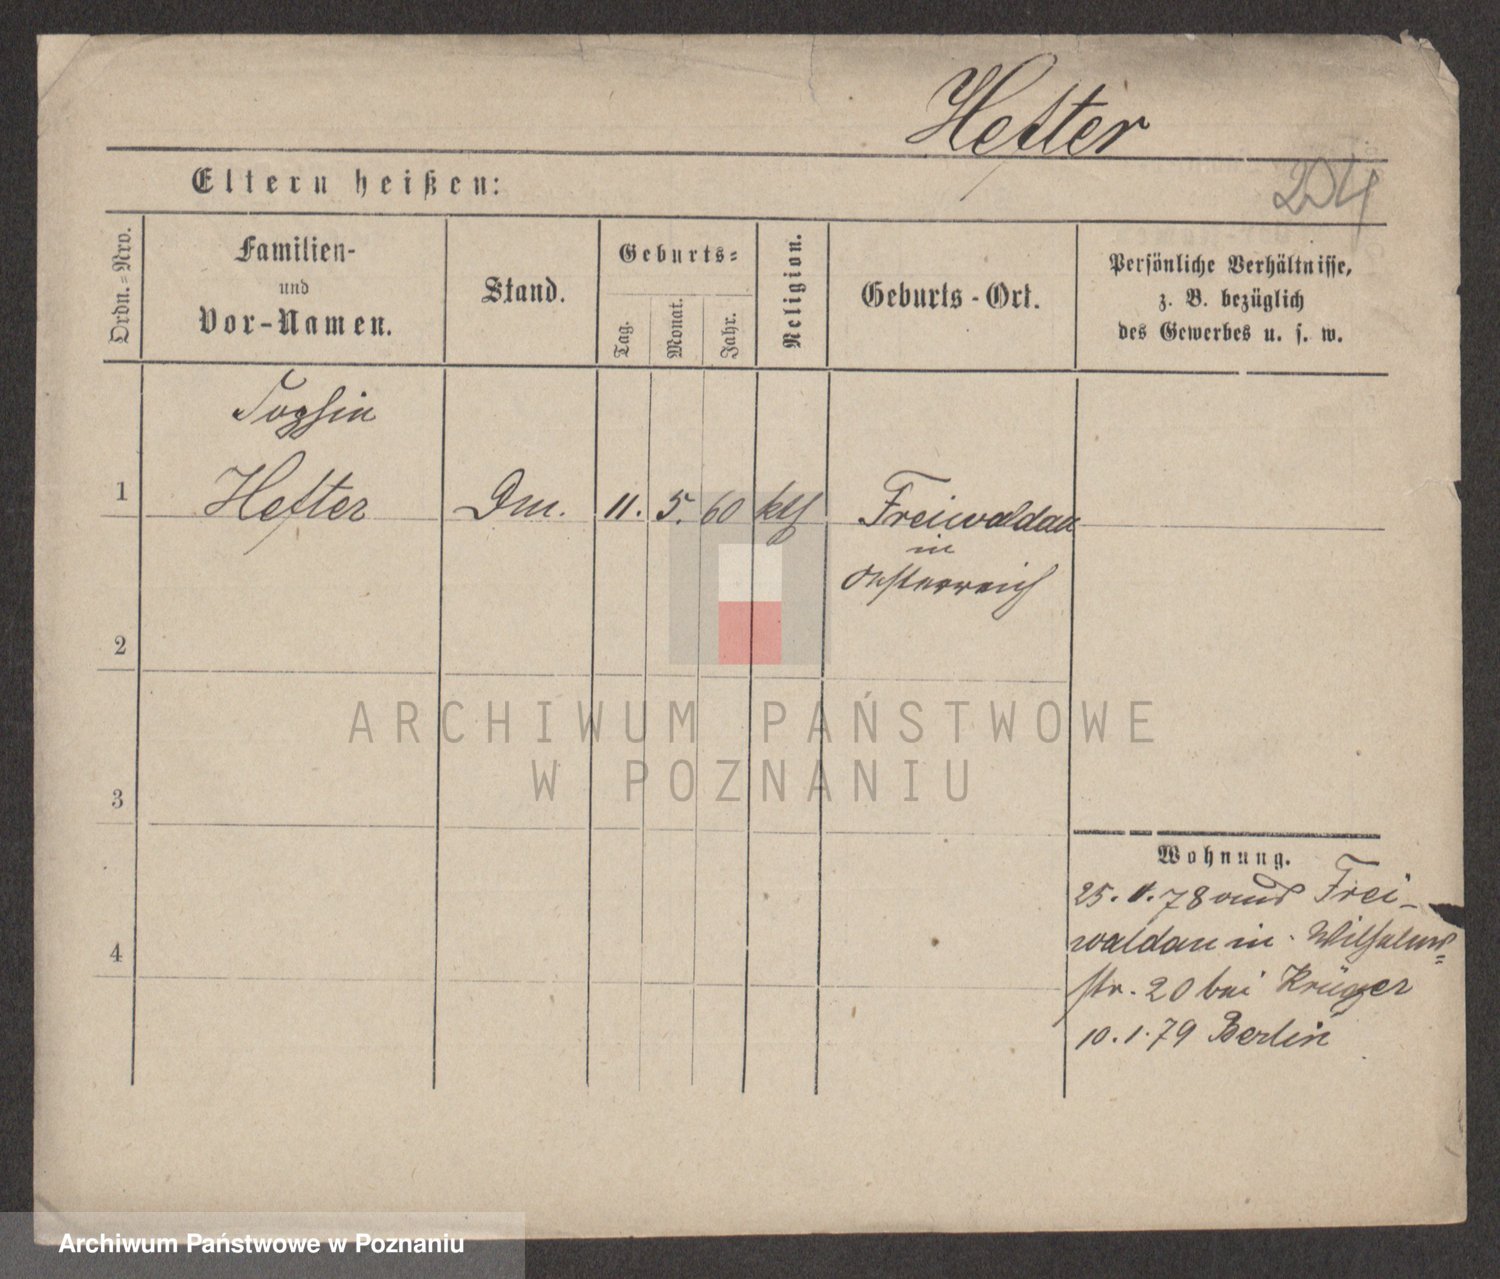 Hefter
204
Eltern heißen:
Ordn.-Nro.
Familien-
und
Vor-Namen.
Stand.
Geburts-
Tag.
Monat.
Jahr.
Religion.
Geburts-Ort.
Persönliche Verhältnisse,
z. B. bezüglich
des Gewerbes u. s. w.
Sophie
1 Hefter Dm. 11. 5. 60 kth Freiwaldau
in
Oesterreich
2
3
4
Wohnung.
25. 78 aus Frei-
waldau in Wilhelms-
str. 20 bei Krüger
10.1.79 Berlin
ARCHIWUM PAŃSTWOWE
W POZNANIU
Archiwum Państwowe w Poznaniu